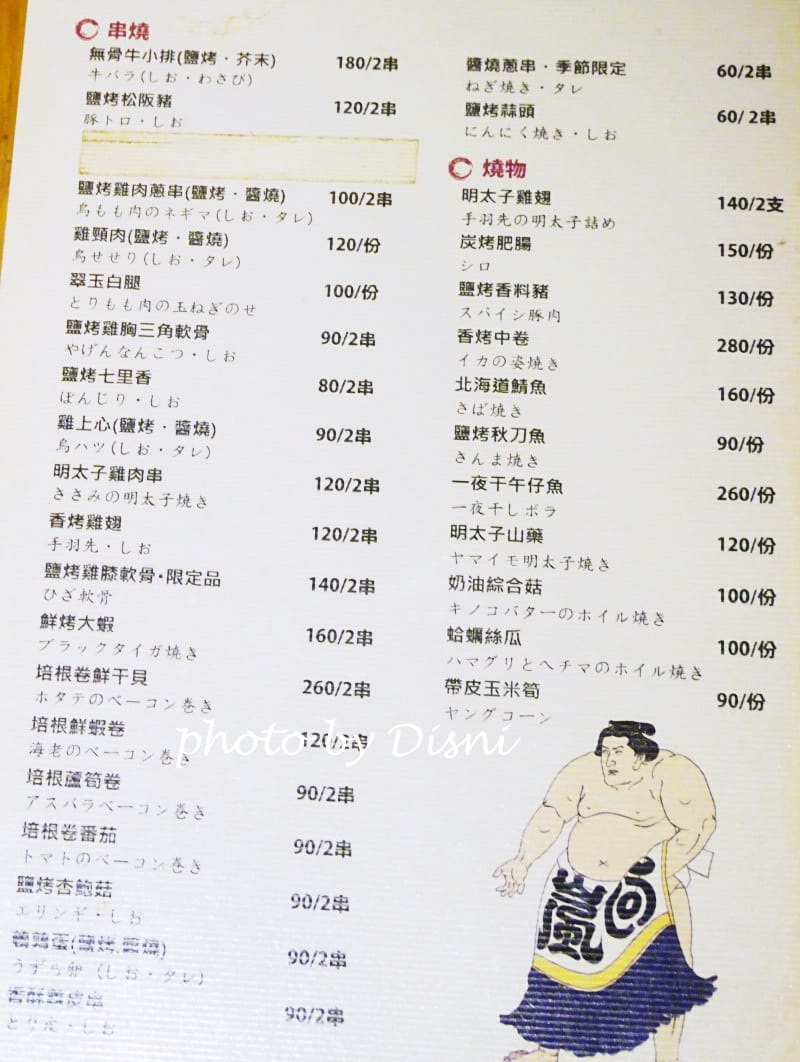 串燒
無骨牛小排(鹽烤．芥末) 180/2串
牛バラ(しお・わさび)
鹽烤松阪豬 120/2串
豚トロ・しお
鹽烤雞肉蔥串(鹽烤．醬燒) 100/2串
鳥もも肉のネギマ(しお・タレ)
雞頸肉(鹽烤．醬燒) 120/份
鳥せせり(しお・タレ)
翠玉白腿 100/份
とりもも肉の玉ねぎのせ
鹽烤雞胸三角軟骨 90/2串
やげんなんこつ・しお
鹽烤七里香 80/2串
ぼんじり・しお
雞上心(鹽烤．醬燒) 90/2串
鳥ハツ(しお・タレ)
明太子雞肉串 120/2串
ささみの明太子焼き
香烤雞翅 120/2串
手羽先・しお
鹽烤雞膝軟骨•限定品 140/2串
ひざ軟骨
鮮烤大蝦 160/2串
ブラックタイガ焼き
培根卷鮮干貝 260/2串
ホタテのベーコン巻き
培根鮮蝦卷 120/2串
海老のベーコン巻き
培根蘆筍卷 90/2串
アスパラベーコン巻き
培根卷番茄 90/2串
トマトのベーコン巻き
鹽烤杏鮑菇 90/2串
エリンギ・しお
鵪鶉蛋(鹽烤.醬燒) 90/2串
うずら卵 (しお・タレ)
香酥雞皮串 90/2串
とり皮・しお
醬燒蔥串．季節限定 60/2串
ねぎ焼き・タレ
鹽烤蒜頭 60/ 2串
にんにく焼き・しお
燒物
明太子雞翅 140/2支
手羽先の明太子詰め
炭烤肥腸 150/份
シロ
鹽烤香料豬 130/份
スパイシ豚肉
香烤中卷 280/份
イカの姿焼き
北海道鯖魚 160/份
さば焼き
鹽烤秋刀魚 90/份
さんま焼き
一夜干午仔魚 260/份
一夜干しボラ
明太子山藥 120/份
ヤマイモ明太子焼き
奶油綜合菇 100/份
キノコバターのホイル焼き
蛤蠣絲瓜 100/份
ハマグリとヘチマのホイル焼き
帶皮玉米筍 90/份
ヤングコーン
photo by Disni
嵐